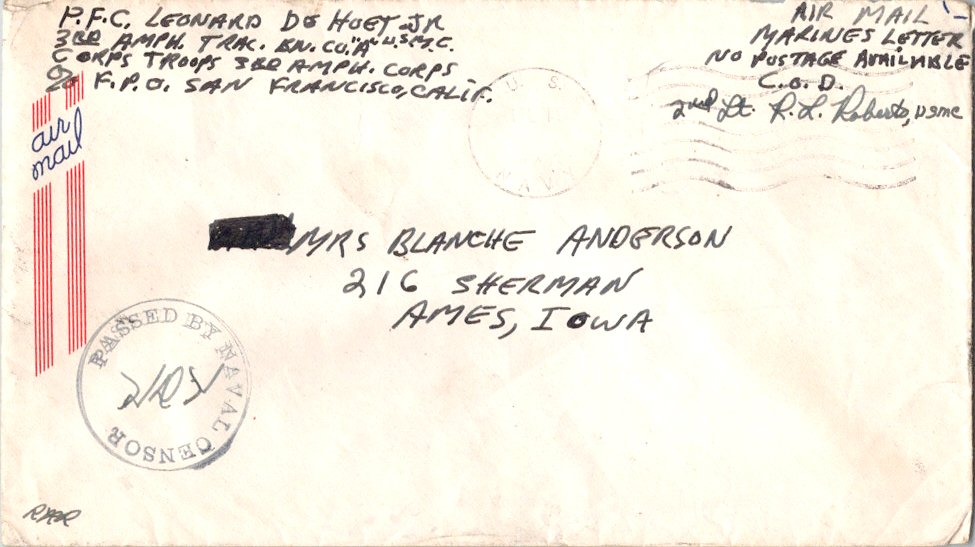 P.F.C. LEONARD DE HOET JR
3RD AMPH. TRAC. BN. CO. "A" U.S.M.C.
CORPS TROOPS 3RD AMPH. CORPS
℅ F.P.O. SAN FRANCISCO, CALIF.
AIR MAIL
MARINES LETTER
NO POSTAGE AVAILABLE
C.O.D.
2nd Lt. R. L. Roberts, USMC
air
mail
U. S.
NAVY
MRS BLANCHE ANDERSON
216 SHERMAN
AMES, IOWA
PASSED BY NAVAL CENSOR